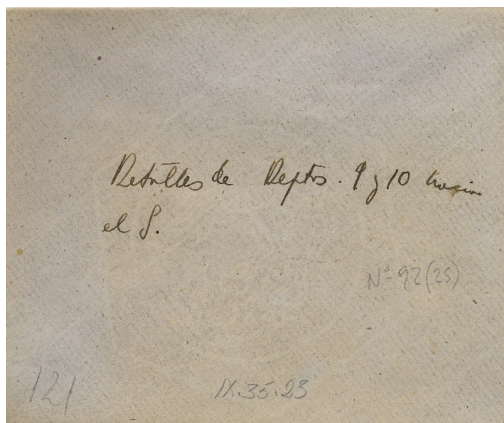 Detalles de Deptos. 9 y 10 hacia
el S.
Nº 92(25)
121
IX.35.23